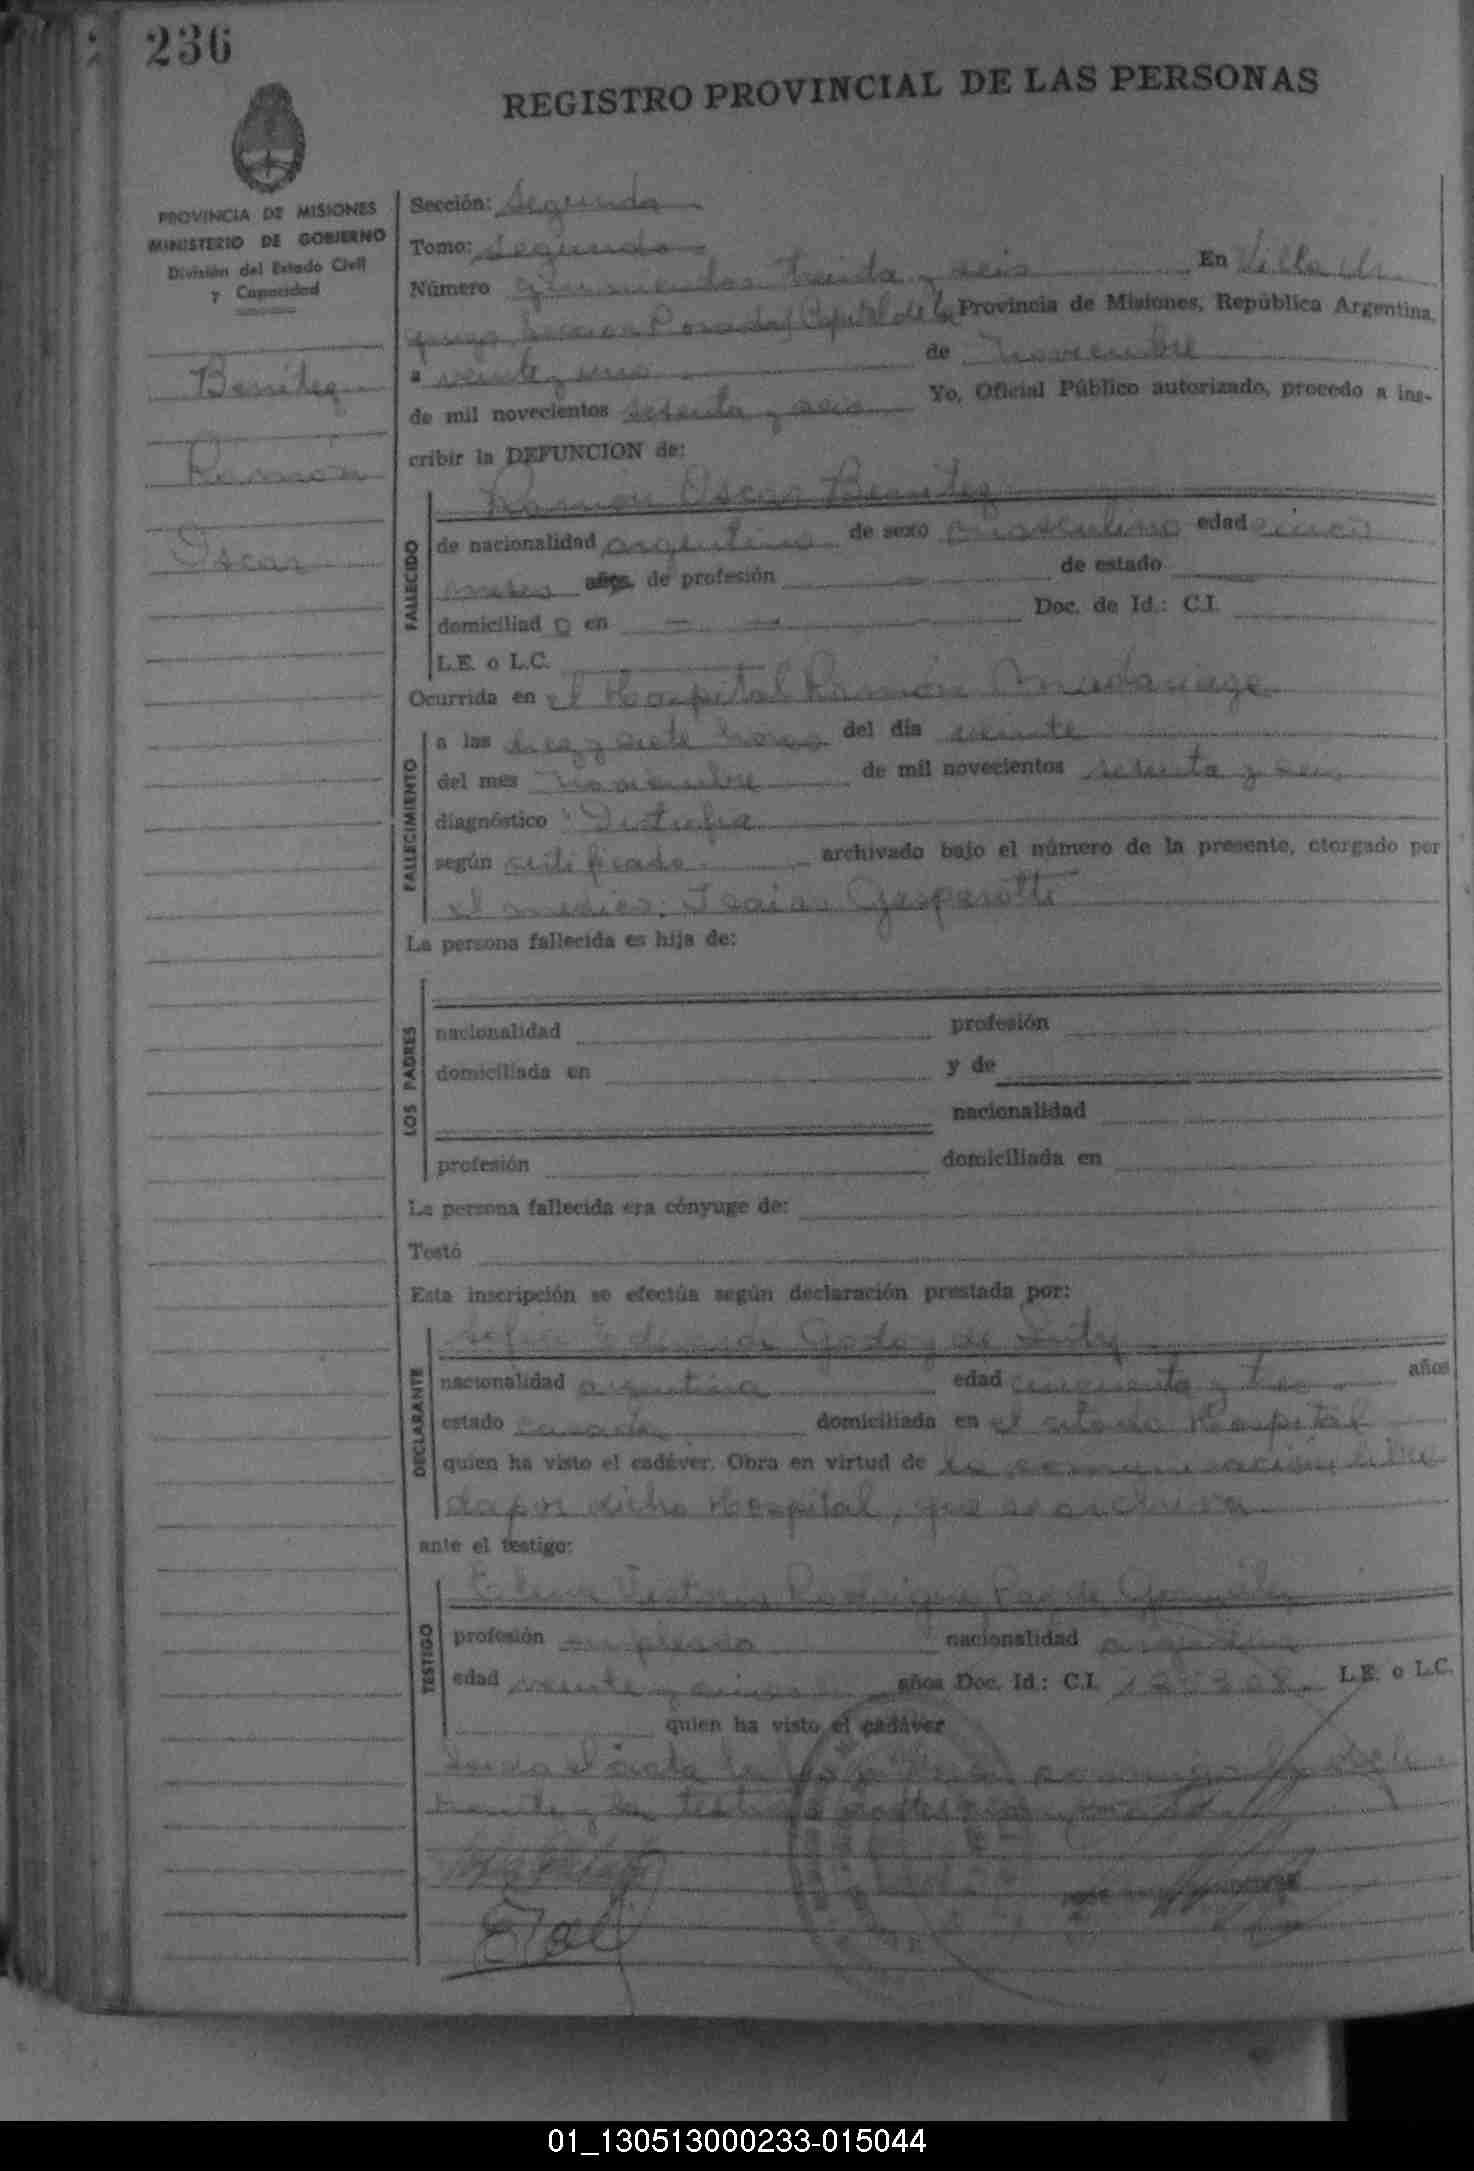 236
REGISTRO PROVINCIAL DE LAS PERSONAS
PROVINCIA DE MISIONES
MINISTERIO DE GOBIERNO
División del Estado Civil
y Capacidad
Benitez
Ramón
Oscar
Sección: Segunda
Tomo: Segundo
Número treinta y seis En Villa
Posadas Capital de la Provincia de Misiones, República Argentina,
a veinte y uno de Noviembre
de mil novecientos setenta y seis Yo, Oficial Público autorizado, procedo a ins-
cribir la DEFUNCION de:
Ramón Oscar Benitez
FALLECIDO
de nacionalidad argentino de sexo masculino edad cinco
meses años, de profesión de estado
domiciliad o en Doc. de Id.: C.I.
L.E. o L.C.
Ocurrida en el Hospital Ramón Madariaga
FALLECIMIENTO
a las diez y siete horas del día veinte
del mes Noviembre de mil novecientos setenta y seis
diagnóstico "Distrofia
según certificado archivado bajo el número de la presente, otorgado por
el médico: Isaias Gasparotti
La persona fallecida es hija de:
LOS PADRES
nacionalidad profesión
domiciliada en y de
nacionalidad
profesión domiciliada en
La persona fallecida era cónyuge de:
Testó
Esta inscripción se efectúa según declaración prestada por:
DECLARANTE
Godoy de
nacionalidad argentina edad cincuenta y tres años
estado casada domiciliada en el citado Hospital
quien ha visto el cadáver. Obra en virtud de la comunicación libra
da por dicho Hospital, que se archiva
ante el testigo:
TESTIGO
Elena Victoria Rodriguez Paz de González
profesión empleada nacionalidad argentina
edad veinte y cinco años Doc. Id.: C.I. L.E. o L.C.
quien ha visto el cadáver
Leida el acta
01_130513000233-015044